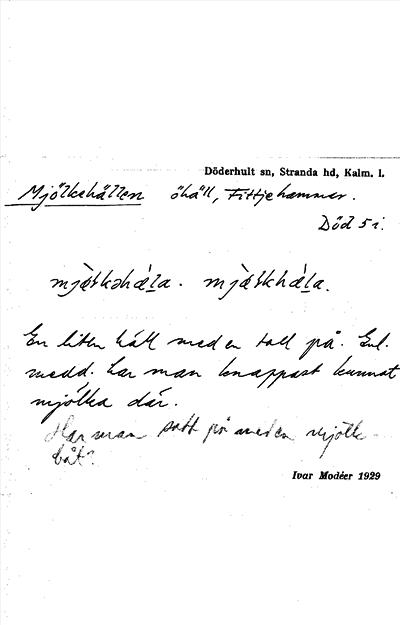 Döderhult sn, Stranda hd, Kalm. l.
Mjölkehällen öhäll, Fittjehammar.
Död 5 i.
En liten häll med en tall på. Enl.
medd. har man knappast kunnat
mjölka där.
Har man satt på med en mjölk-
båt?
Ivar Modéer 1929